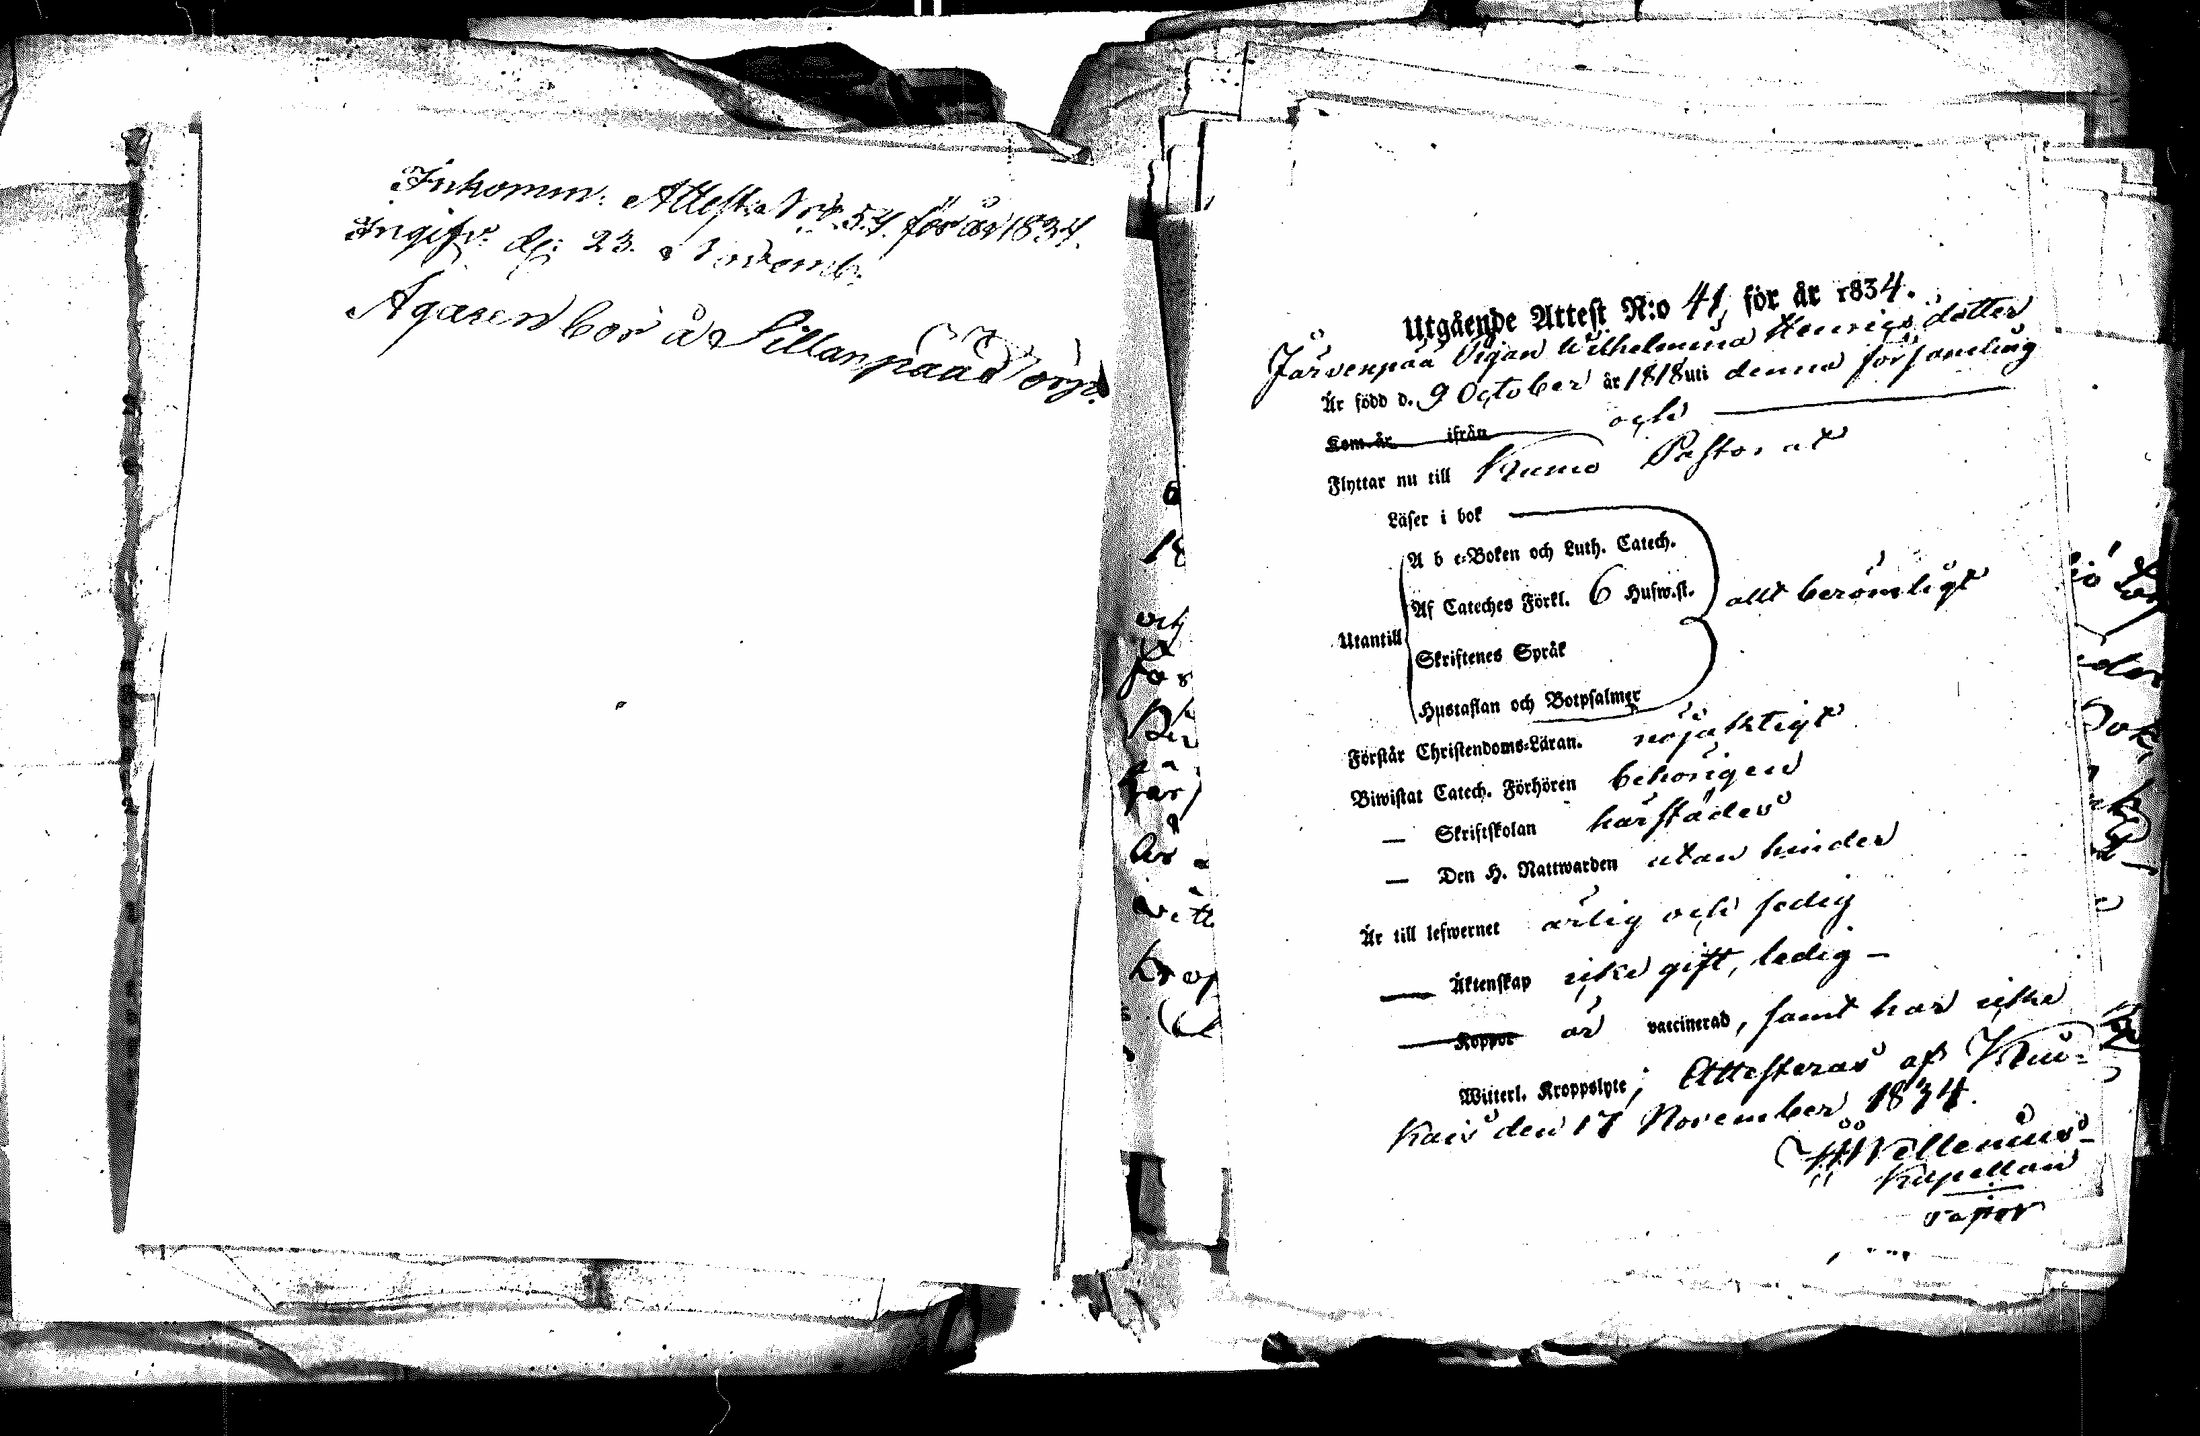 Inkomm. Attest No 54. för år 1834.
Ingifv. d: 23. Novemb.
Ägaren bor å Sillanpää Torp.
Utgående Attest N:o 41, för år 1834.
Järvenpää Pigan Wilhelmina Henricsdotter
Är född d. 9 October år 1818 uti denna församling
Kom år ifrån och
Flyttar nu till Kumo Pastorat
Läser i bok
A b c-Boken och Luth. Catech.
Af Cateches Förkl. 6 Husw.st. allt berömligt
Utantill
Skriftenes Språk
Hustaflan och Botpsalmer
Förstår Christendoms-Läran. nöjaktigt
Biwistat Catech. Förhören behörigen
— Skriftskolan härstädes
— Den H. Nattwarden utan hinder
Är till lefwernet ärlig och sedig
— Äktenskap icke gift, ledig —
Koppor är vaccinerad, samt har icke
Witterl. Kroppslyte; Attesteras af Kiu-
kais den 17 November 1834.
Kapellan